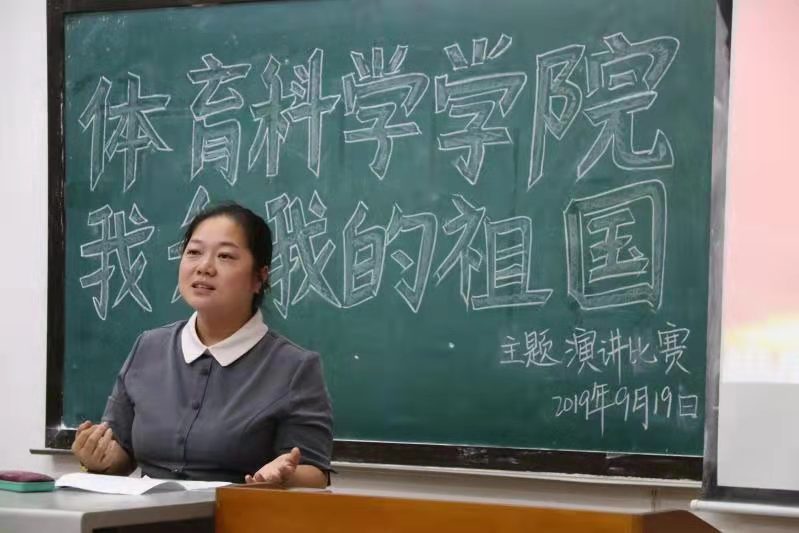 体育科学学院
我和我的祖国
主题演讲比赛
2019年9月19日